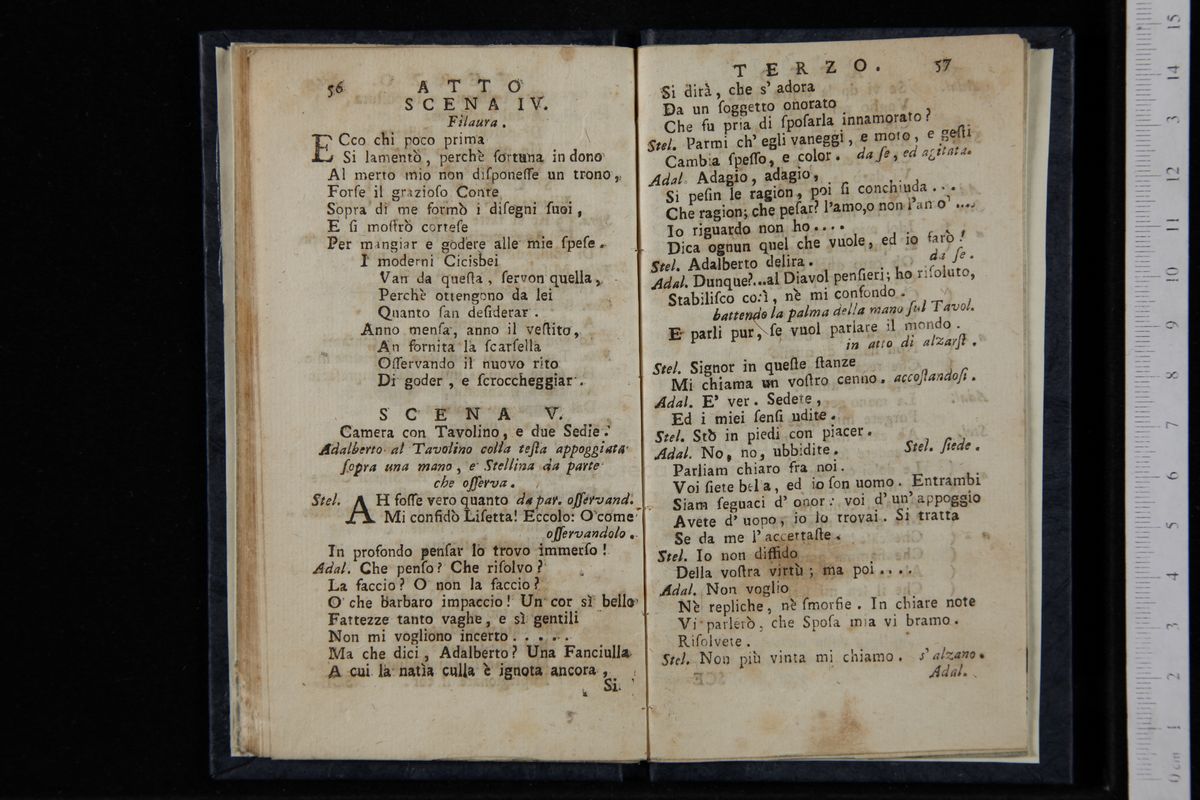 56 ATTO
SCENA IV.
Filaura.
ECco chi poco prima
Si lamentò, perchè fortuna in dono
Al merto mio non disponesse un trono,
Forse il grazioso Conte
Sopra di me formò i disegni suoi,
E si mostrò cortese
Per mangiar e godere alle mie spese.
I moderni Cicisbei
Van da questa, servon quella,
Perchè ottengono da lei
Quanto san desiderar.
Anno mensa, anno il vestito,
An fornita la scarsella
Osservando il nuovo rito
Di goder, e scroccheggiar.
SCENA V.
Camera con Tavolino, e due Sedie.
Adalberto al Tavolino colla testa appoggiata
sopra una mano, e Stellina da parte
che osserva.
Stel. AH fosse vero quanto da par. osservand.
Mi confidò Lisetta! Eccolo: O come
osservandolo.
In profondo pensar lo trovo immerso!
Adal. Che penso? Che risolvo?
La faccio? O non la faccio?
O che barbaro impaccio! Un cor sì bello
Fattezze tanto vaghe, e sì gentili
Non mi vogliono incerto.....
Ma che dici, Adalberto? Una Fanciulla
A cui la natìa culla è ignota ancora,
Si
TERZO. 57
Si dirà, che s' adora
Da un soggetto onorato
Che fu pria di sposarla innamorato?
Stel. Parmi ch' egli vaneggi, e moto, e gesti
Cambia spesso, e color. da se, ed agitata.
Adal. Adagio, adagio,
Si pesin le ragion, poi si conchiuda...
Che ragion; che pesar? l'amo,o non l'amo....
Io riguardo non ho....
Dica ognun quel che vuole, ed io farò!
Stel. Adalberto delira. da se.
Adal. Dunque?...al Diavol pensieri; ho risoluto,
Stabilisco così, nè mi confondo.
battendo la palma della mano sul Tavol.
E parli pur, se vuol parlare il mondo.
in atto di alzarsi.
Stel. Signor in queste stanze
Mi chiama un vostro cenno. accostandosi.
Adal. E' ver. Sedete,
Ed i miei sensi udite.
Stel. Stò in piedi con piacer.
Adal. No, no, ubbidite. Stel. siede.
Parliam chiaro fra noi.
Voi siete bella, ed io son uomo. Entrambi
Siam seguaci d' onor: voi d' un' appoggio
Avete d' uopo, io lo trovai. Si tratta
Se da me l' accettaste.
Stel. Io non diffido
Della vostra virtù; ma poi....
Adal. Non voglio
Nè repliche, nè smorfie. In chiare note
Vi parlerò, che Sposa mia vi bramo.
Risolvete.
Stel. Non più vinta mi chiamo. s' alzano.
Adal.
15
14
13
12
11
10
9
8
7
6
5
4
3
2
1
0 cm